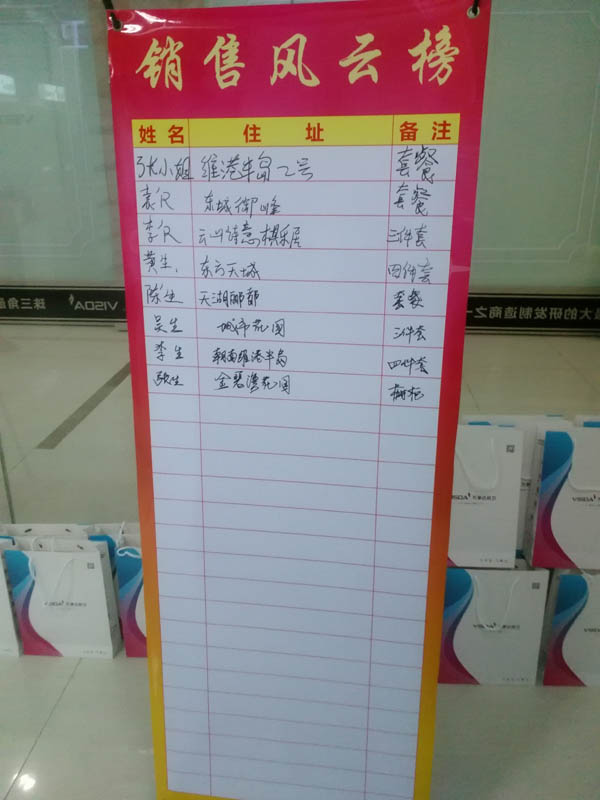 销售风云榜
姓名 住址 备注
张小姐 维港半岛 套餐
袁R 东城御峰 套餐
李R 云山诗意棋乐居 三件套
黄生. 东方天城 四件套
陈生 天湖郦都 套餐
吴生 城市花园 三件套
李生 朝南维港半岛 四件套
张生 金碧湾花园 橱柜
珠三角 VISDA
最大的研发制造商之一
VISDA
VISDA
VISDA
VISDA